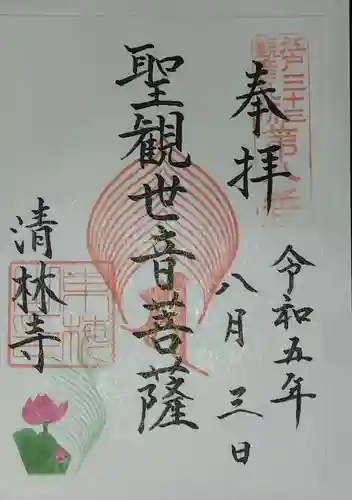 江戸三十三
観音札所第八番
奉拝
令和五年
八月三日
聖観世音菩薩
清林寺